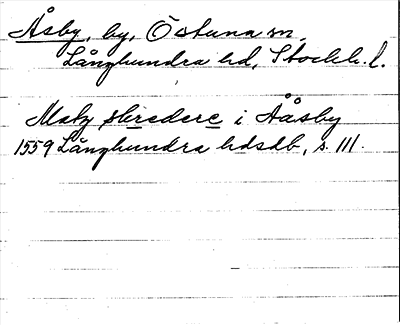 Åsby, by, Östuna sn,
Långhundra hd, Stockh. l.
Matz skredere i Aåsby
1559 Långhundra hdsdb, s. 111.